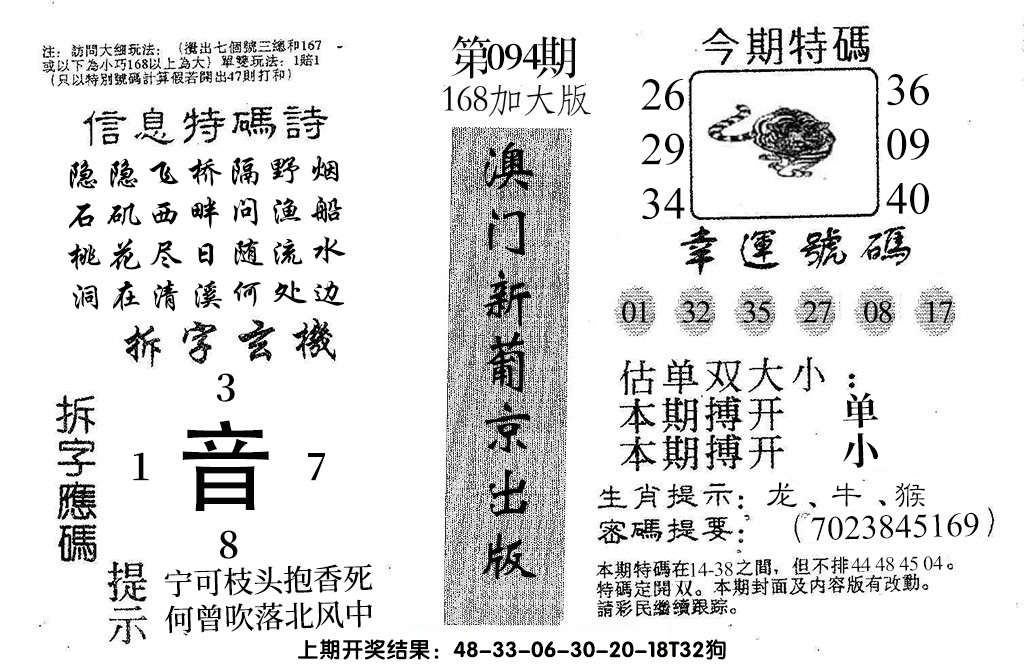 注：訪問大细玩法：(攪出七個號三總和167
或以下為小巧168以上為大）單雙玩法：1賠1
(只以特別號碼計算假若開出47則打和）
信息特碼詩
隐隐飞桥隔野烟
石矶西畔问渔船
桃花尽日随流水
洞在清溪何处边
拆字玄機
拆字應碼
3
1 音 7
8
提示
宁可枝头抱香死
何曾吹落北风中
第094期
168加大版
澳门新葡京出版
今期特碼
26 36
29 09
34 40
幸運號碼
01 32 35 27 08 17
估单双大小：
本期搏开 单
本期搏开 小
生肖提示：龙、牛、猴
密碼提要：（7023845169）
本期特碼在14-38之間，但不排44 48 45 04。
特碼定開双。本期封面及内容版有改動。
請彩民繼續跟踪。
上期开奖结果：48-33-06-30-20-18T32狗